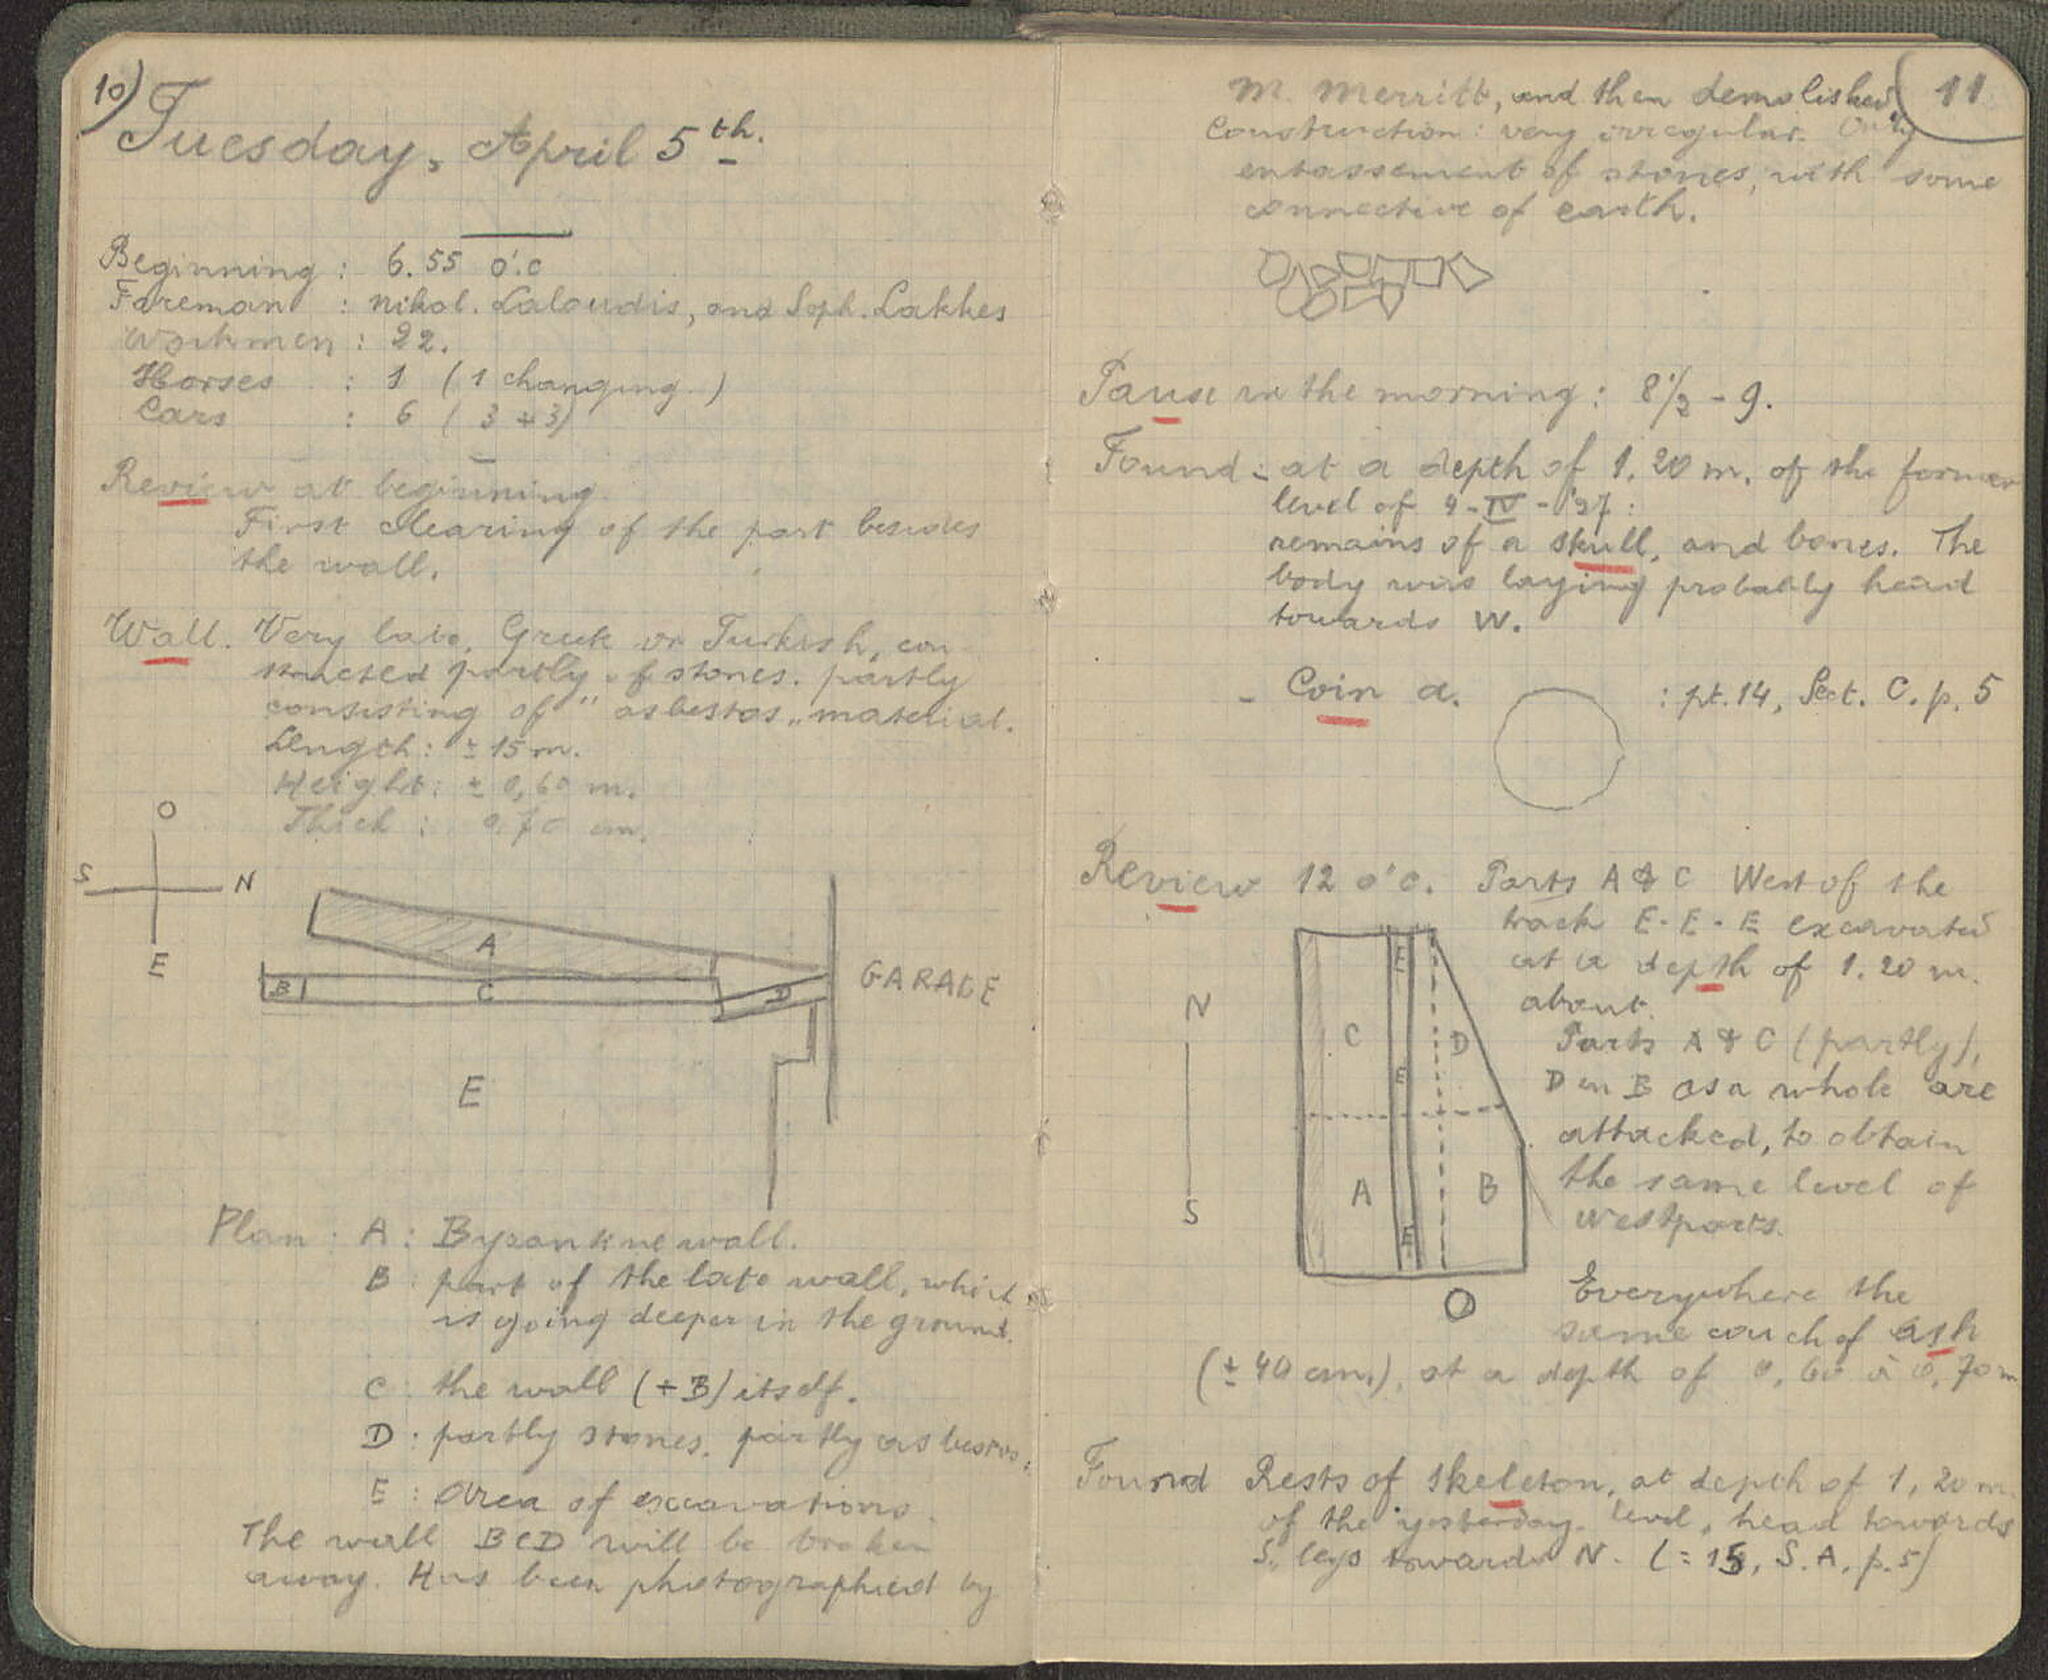 10)
Tuesday, April 5th.
Beginning : 6.55 o'.c
Foreman : Nikol. Laloudis, and Soph. Lakkes
Workmen : 22.
Horses : 1 (1 changing.)
Cars : 6 (3 + 3)
Review at beginning.
First clearing of the part besides
the wall.
Wall. Very late, Greek or Turkish, con-
structed partly of stones. partly
consisting of "asbestos" material.
Length: ± 15 m.
Height: ± 0,60 m.
Thick : 0,70 cm.
O
S N
E
A
B C D
GARAGE
E
Plan : A : Byzantine wall.
B : part of the late wall, which
is going deeper in the ground.
C : the wall (+B) itself.
D : partly stones, partly asbestos.
E : Area of excavations.
The wall BCD will be broken
away. Has been photographied by
11
M. Merritt, and then demolished.
Construction: very irregular. Only
entassement of stones, with some
connective of earth.
Pause in the morning: 8 1/2 - 9.
Found : at a depth of 1.20 m. of the former
level of 4-IV-'37:
remains of a skull, and bones. The
body was laying probably head
towards W.
- Coin a. : pt.14, Sect. C. p. 5
Review 12 o'c. Parts A & C West of the
track E-E-E excavated
at a depth of 1.20 m.
about.
Parts A & C (partly),
D en B as a whole are
attacked, to obtain
the same level of
westparts.
N
S
E
C D
E
A B
E
O
Everywhere the
same couch of ash
(± 40 cm.), at a depth of 0,60 à 0,70 m
Found Rests of skeleton, at depth of 1,20 m.
of the yesterday level, head towards
S., legs towards N. (= 15, S.A, p.5)